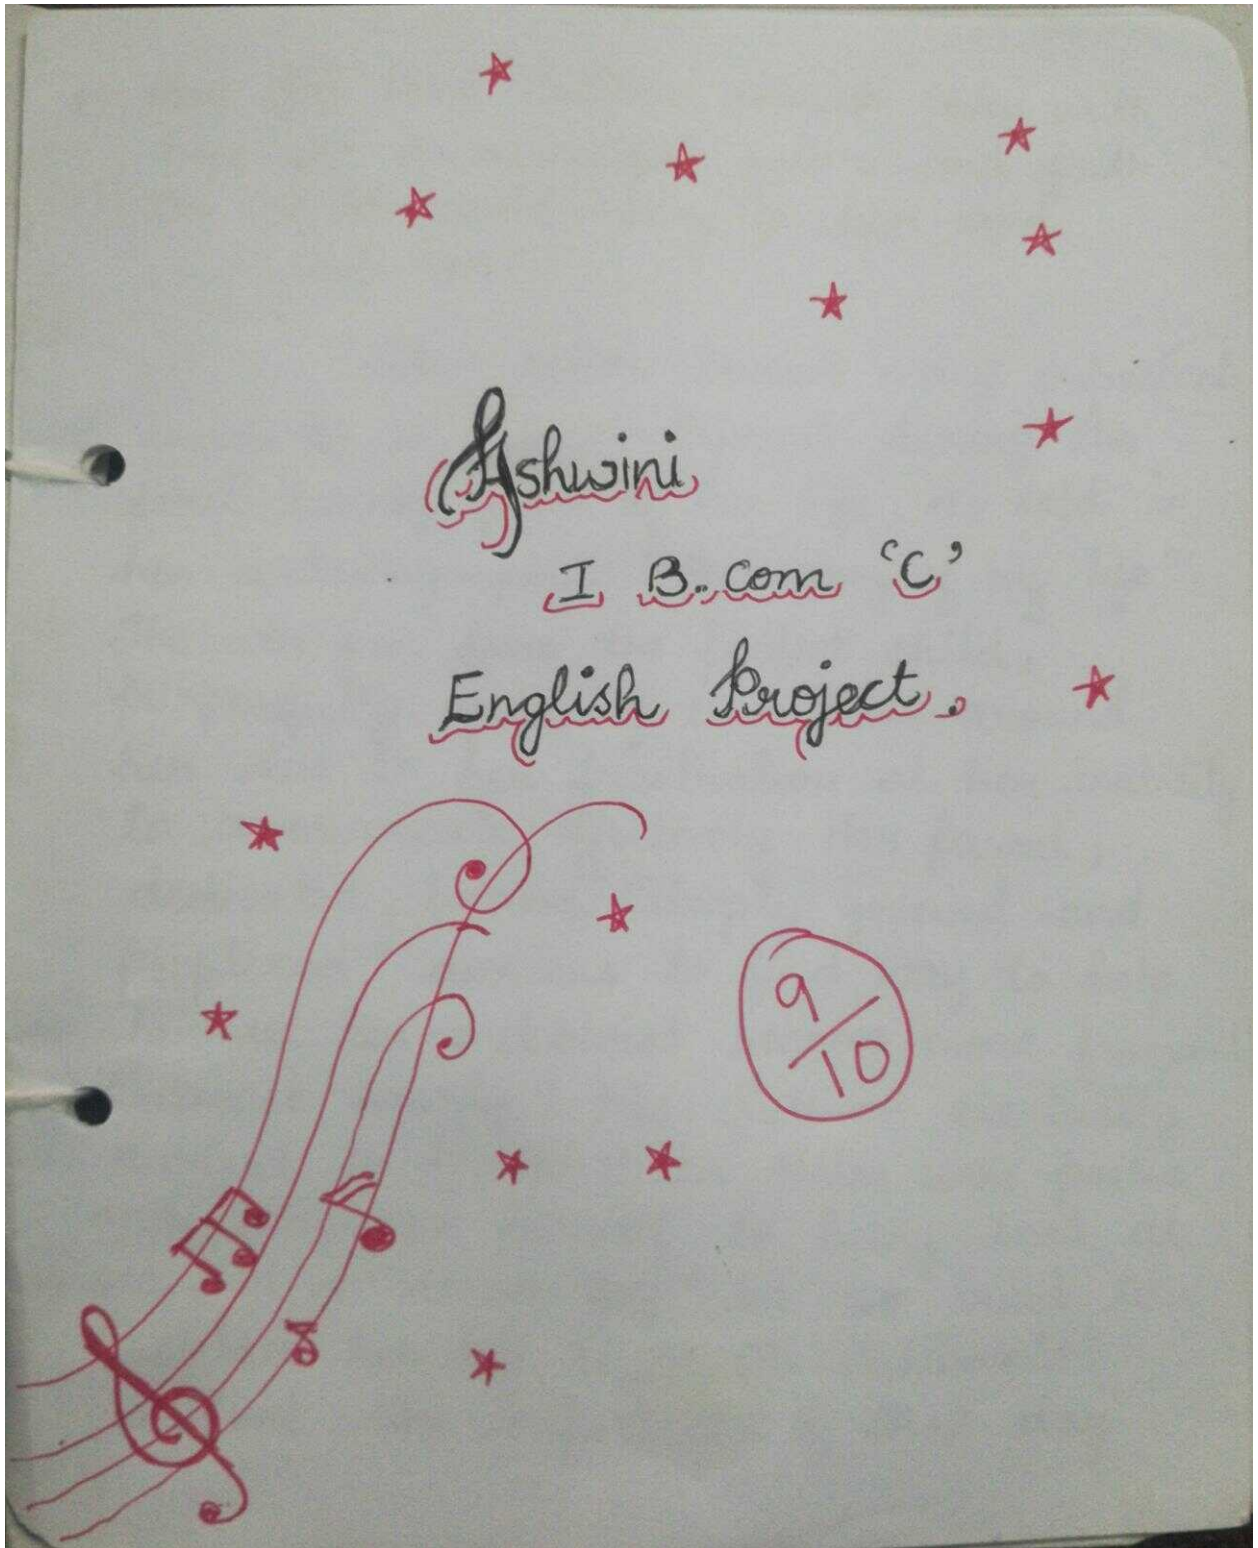 Ashwini
I B.com 'C'
English Project.
9/10